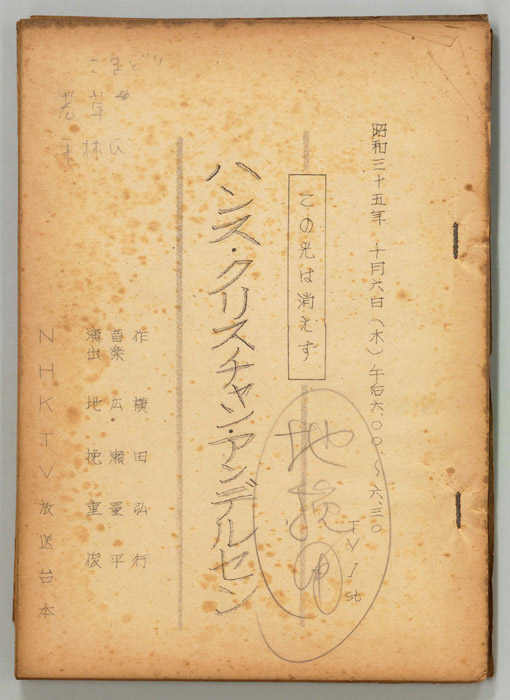 昭和三十五年 十月六日（木）午后六.〇〇～六.三〇
TV 1st
この光は消えず
ハンス・クリスチャン・アンデルセン
作 横田弘行
音楽 広瀬量平
演出 地挽重俊
NHKTV放送台本
地挽用